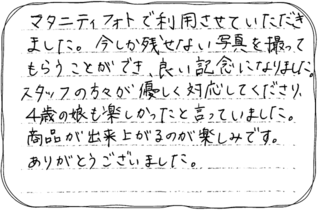 マタニティフォトで利用させていただき
ました。今しか残せない写真を撮って
もらうことができ、良い記念になりました。
スタッフの方々が優しく対応してくださり、
4歳の娘も楽しかったと言っていました。
商品が出来上がるのが楽しみです。
ありがとうございました。